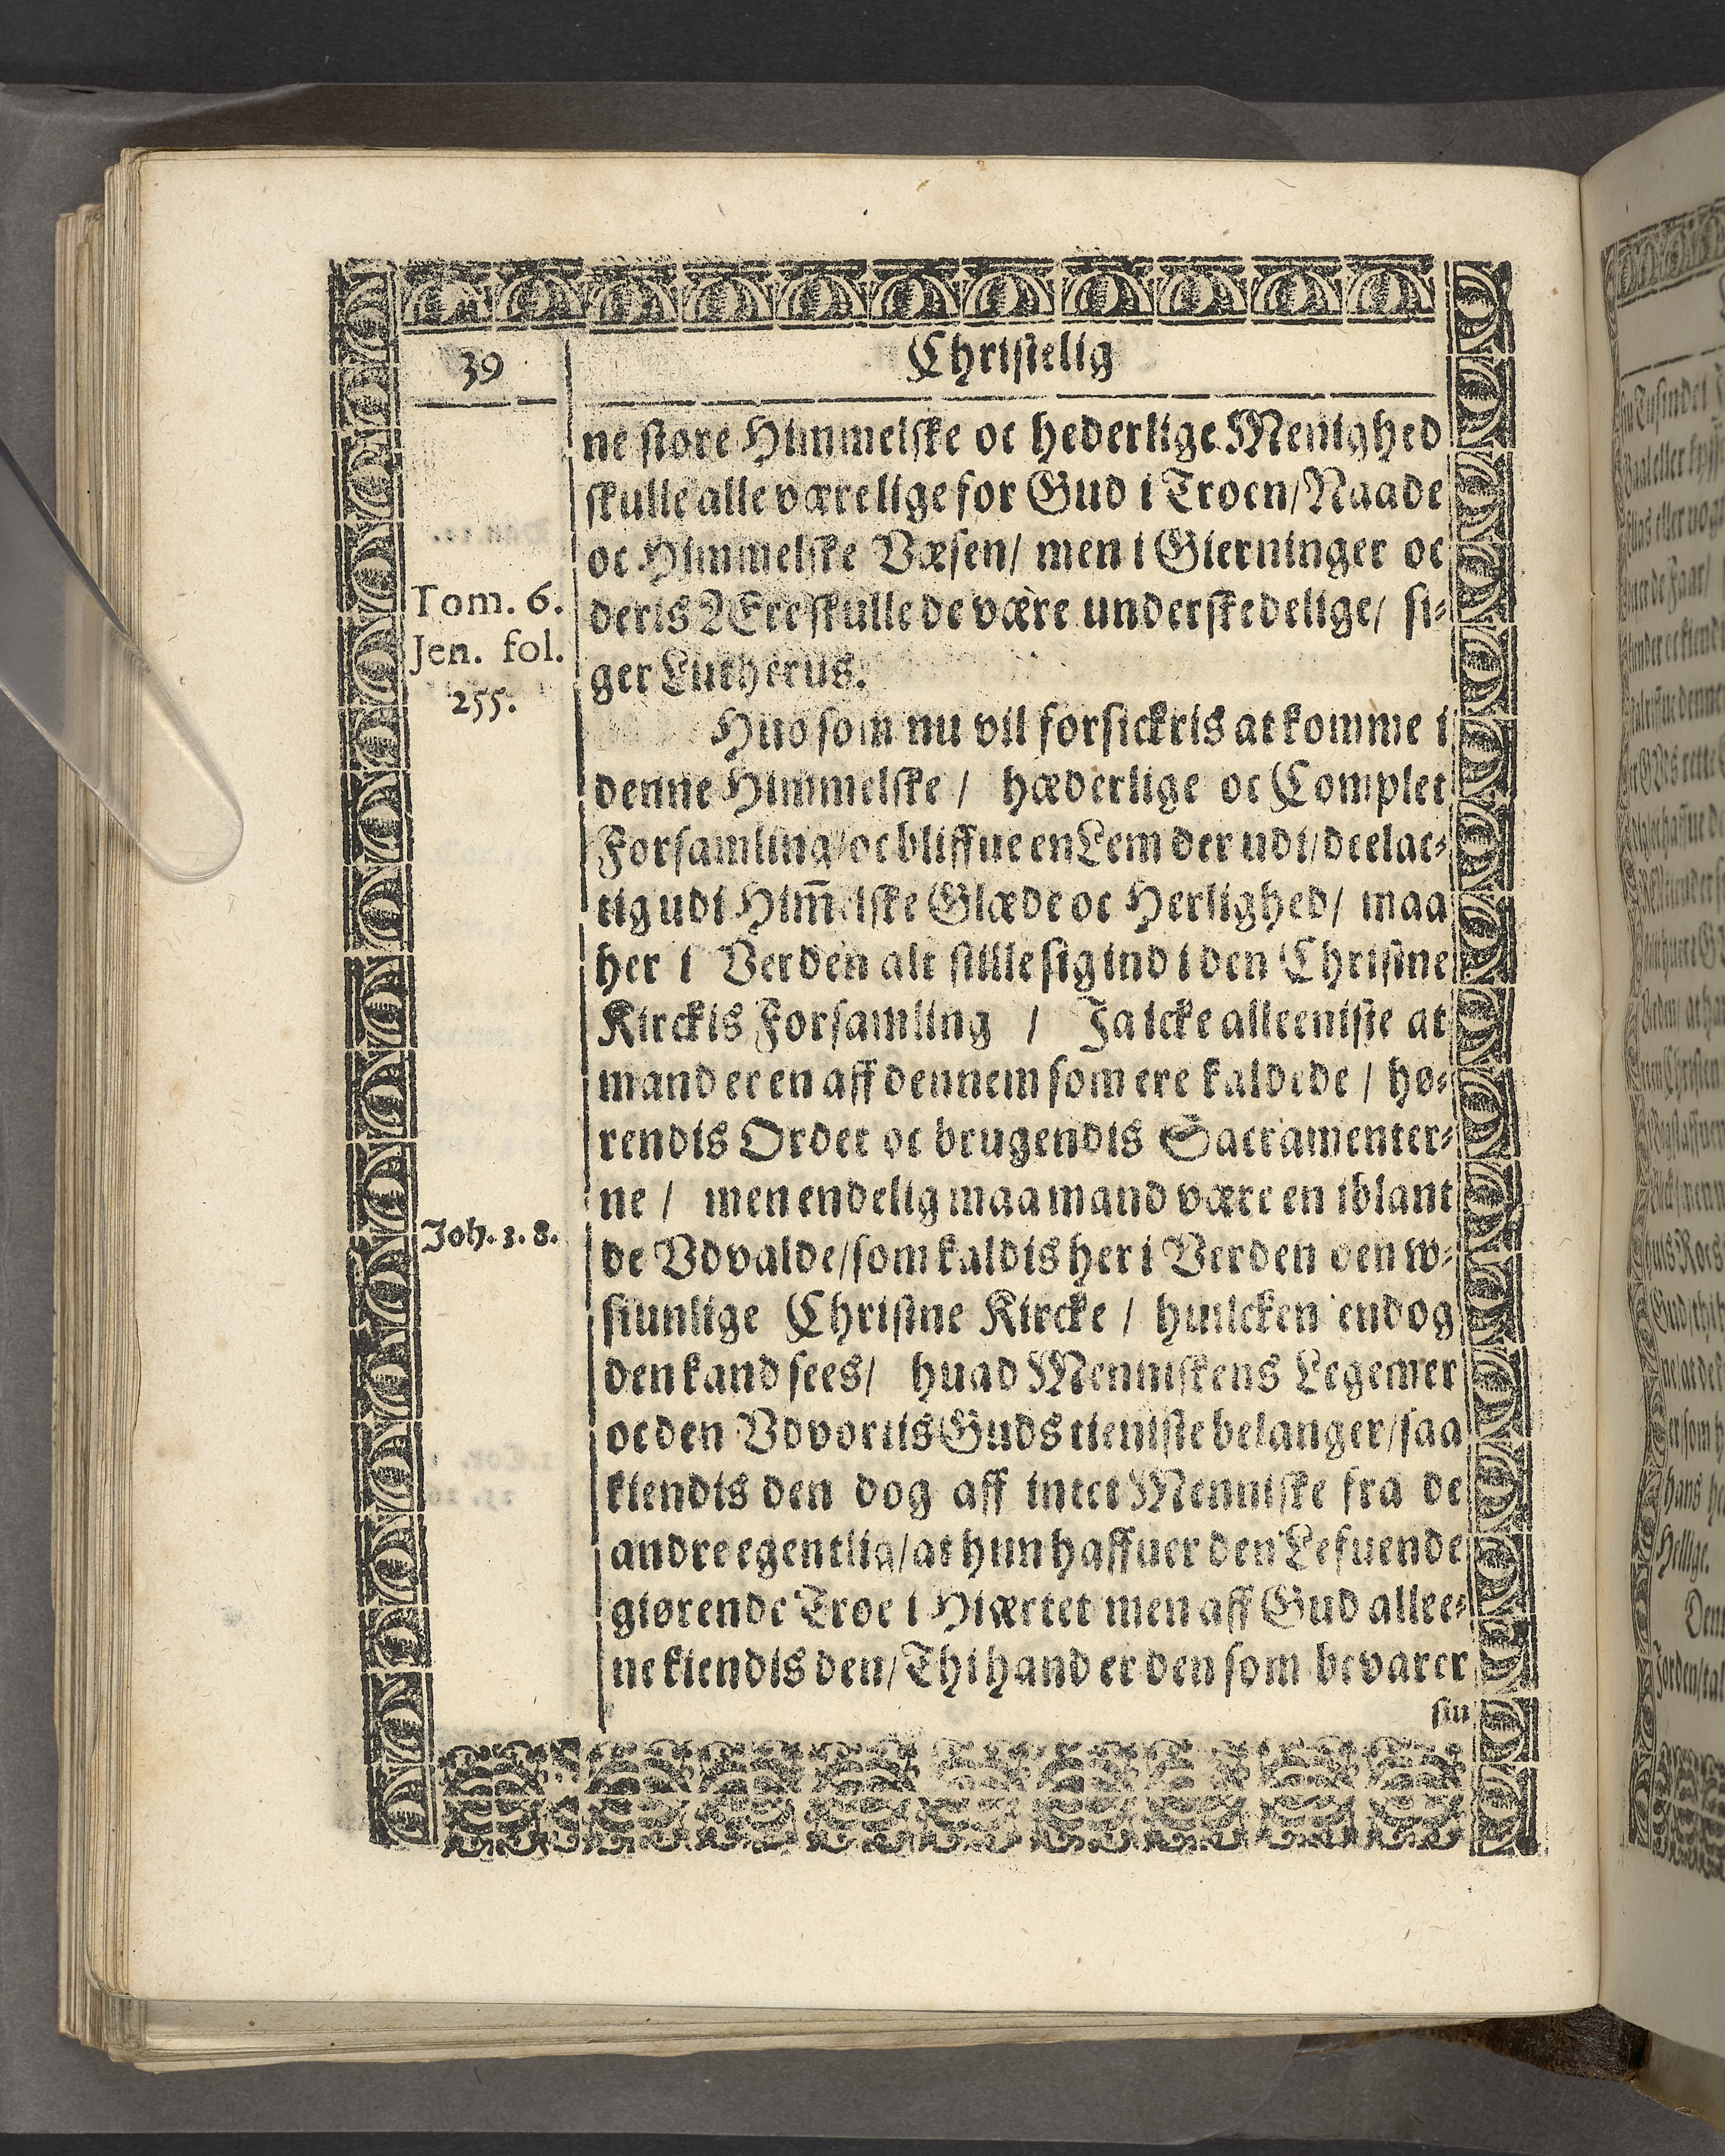 39
Christelig
ne store Himmelske oc hederlige Menighed
skulle alle være lige for Gud i Troen/ Naade
oc Himmelske Væsen/ men i Gierninger oc
Tom. 6.
Jen. fol.
255.
deris Ære skulle de være underskedelige/ si⸗
ger Lutherus.
Huo som nu vil forsickris at komme i
denne Himmelske / hæderlige oc Complet
Forsamling/ oc bliffue en Lem der udi/ deelac⸗
tig udi Him̄elske Glæde oc Herlighed/ maa
her i Verden alt stille sig ind i den Christne
Kirckis Forsamling / Ja icke alleeniste at
mand er en aff dennem som ere kaldede / hø⸗
rendis Ordet oc brugendis Sacramenter⸗
ne / men endelig maa mand være en iblant
Joh. 3. 8.
de Vdvalde/ som kaldis her i Verden den w⸗
siunlige Christne Kircke / huilcken endog
den kand sees/ huad Menniskens Legemer
oc den Vdvortis Guds tieniste belanger/ saa
kiendis den dog aff intet Menniske fra de
andre egentlig/ at hun haffuer den Lefuende
giørende Troe i Hiærtet men aff Gud allee⸗
ne kiendis den/ Thi hand er den som bevarer
sin